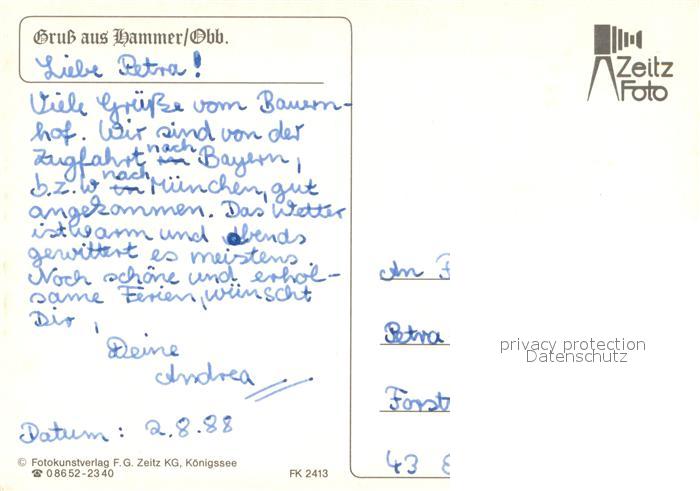 Gruß aus Hammer/Obb.
Liebe Petra!
Viele Grüße vom Bauern-
hof. Wir sind von der
Zugfahrt nach Bayern,
b.z.w nach München, gut
angekommen. Das Wetter
ist warm und abends
gewittert es meistens.
Noch schöne und erhol-
same Ferien, wünscht
Dir,
Deine
Andrea
Datum: 2.8.88
© Fotokunstverlag F. G. Zeitz KG, Königssee
☎ 08652-2340
FK 2413
Zeitz
Foto
An
Petra
Forst
43
privacy protection
Datenschutz